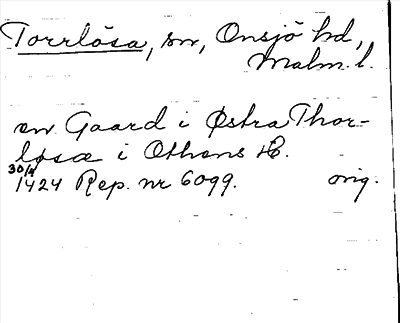 Torrlösa, sn, Onsjö hd,
Malm. l.
en Gaard i Østra Thor-
løsæ i Othens H.
30/4
1424 Rep. nr 6099. orig.